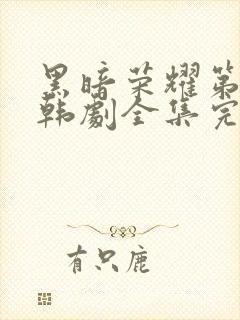 黑暗荣耀第
韩剧全集完
有只鹿